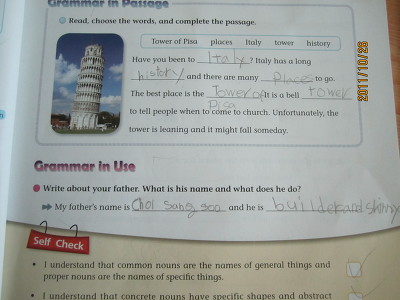 Grammar in Passage
Read, choose the words, and complete the passage.
Tower of Pisa places Italy tower history
Have you been to Italy? Italy has a long
history and there are many Places to go.
The best place is the Tower of Pisa. It is a bell tower
to tell people when to come to church. Unfortunately, the
tower is leaning and it might fall someday.
2011/10/26
Grammar in Use
Write about your father. What is his name and what does he do?
My father's name is Choi sang soo and he is builder and
Self Check
• I understand that common nouns are the names of general things and
proper nouns are the names of specific things.
• I understand that concrete nouns have specific shapes and abstract